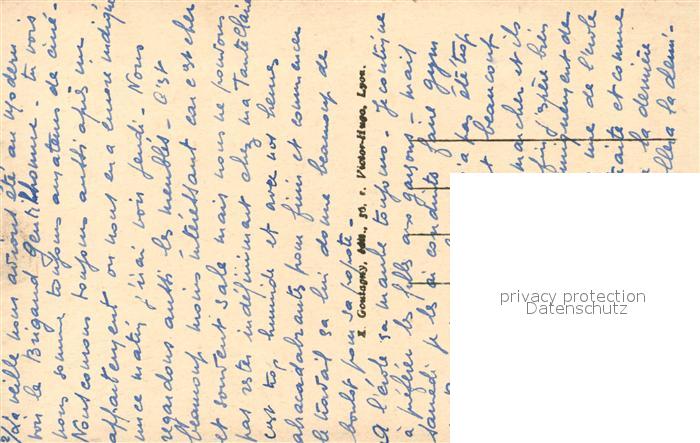 La veille nous avions été au modern
voir le Brigand Gentilhomme - tu vois
nous sommes toujours amateurs de ciné-
Nous courons toujours aussi après un
appartement on nous en a encore indiqué
un ce matin j'irai voir jeudi - Nous
regardons aussi les meublés - C'est
beaucoup moins intéressant car c'est cher
et souvent sale mais nous ne pouvons
pas rester indéfiniment chez ma Tante Claire
c'est trop humide et avec nos heures
abracadabrantes pour finir et commencer
le travail ça lui donne beaucoup de
boulot pour sa popote -
E. Goutagny, édit., 50, r. Victor-Hugo, Lyon.
A l'école ça marche toujours - Je continue
à préférer les filles aux garçons - mais
samedi je les ai conduits faire gym
n'a pas été trop
beaucoup
marcher et ils
fin j'espère bien
de
de l'école
et comme
la dernière
la demi-
privacy protection
Datenschutz